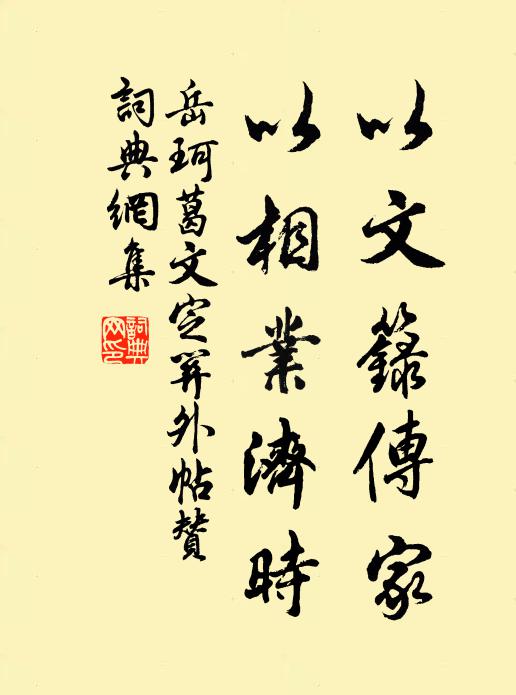 以文籙傳家
以相業濟時
岳珂葛文定算外帖贊
詞典網集
詞典網印